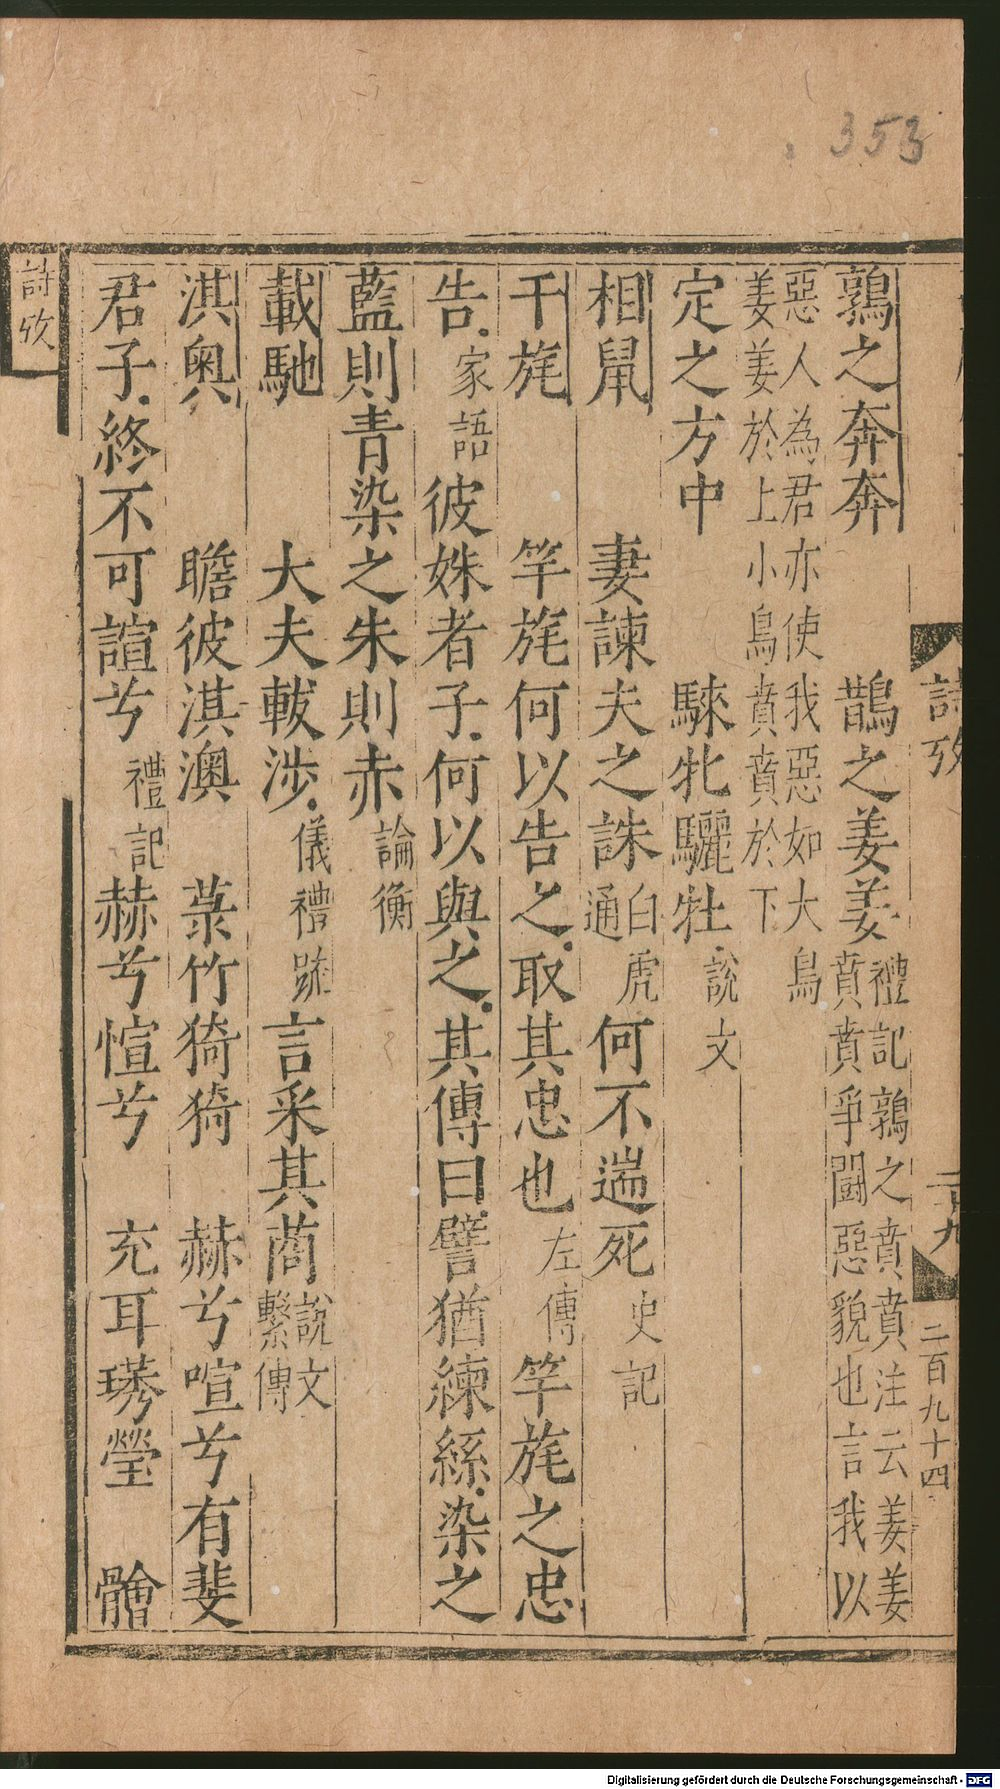 353
詩攷
二十九
二百九十四
鶉之奔奔　鵲之姜姜禮記鶉之賁賁注云姜姜賁賁爭鬭惡貌也言我以
惡人為君亦使我惡如大鳥姜姜於上小鳥賁賁於下
定之方中　騋牝驪牡說文
相鼠　妻諫夫之誅白虎通　何不遄死史記
干旄　竿旄何以告之取其忠也左傳　竿旄之忠
告家語彼姝者子何以與之其傳曰譬猶練絲染之
藍則青染之朱則赤論衡
載馳　大夫軷涉儀禮疏　言采其䔮說文繫傳
淇奧　瞻彼淇澳　菉竹猗猗　赫兮喧兮有斐
君子終不可諠兮禮記　赫兮愃兮　充耳琇瑩　䯤
詩攷
Digitalisierung gefördert durch die Deutsche Forschungsgemeinschaft - DFG